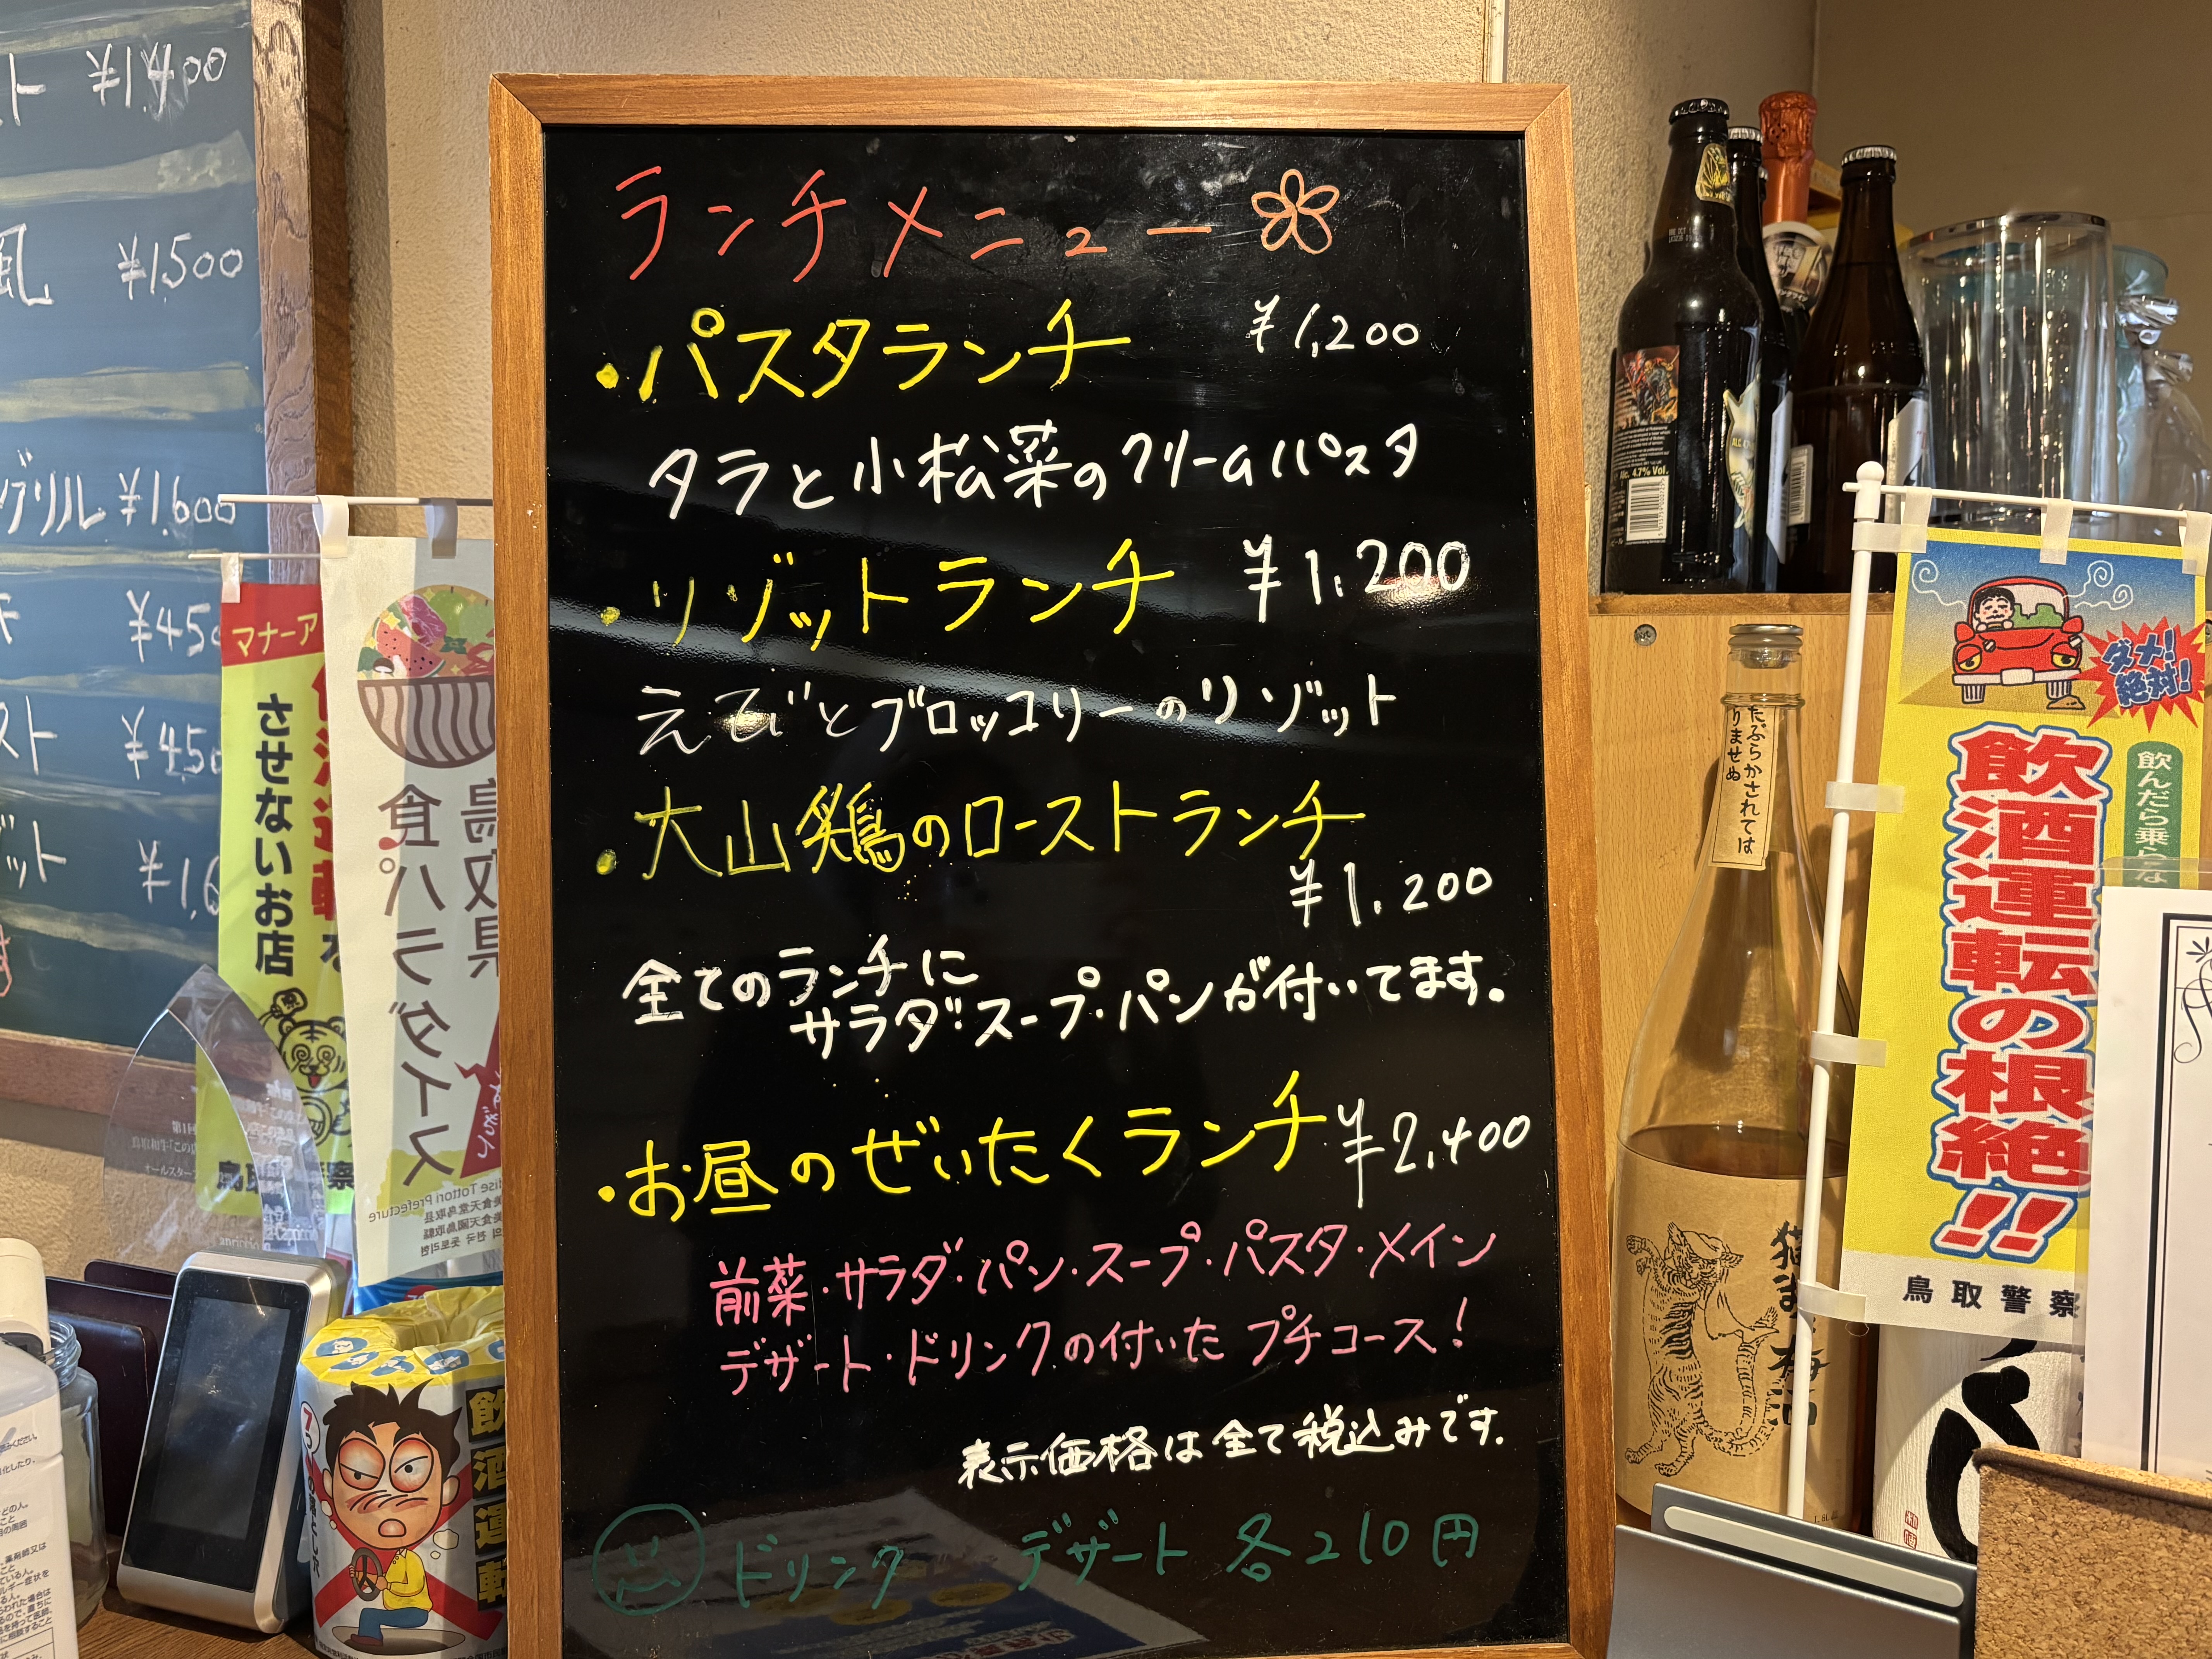 ランチメニュー
・パスタランチ ¥1,200
タラと小松菜のクリームパスタ
・リゾットランチ ¥1,200
えびとブロッコリーのリゾット
・大山鶏のローストランチ
¥1,200
全てのランチに
サラダ・スープ・パンが付いてます。
・お昼のぜいたくランチ ¥2,400
前菜・サラダ・パン・スープ・パスタ・メイン
デザート・ドリンクの付いた プチコース!
表示価格は全て税込みです。
ドリンク デザート 各210円
ト ¥1,400
風 ¥1,500
グリル ¥1,600
¥450
スト ¥450
ット ¥1,6
マナーア
させないお店
鳥取県
食パラダイス
飲酒運転
Alc 4.7% Vol.
たぶらかされては
りませぬ
ダメ!
絶対!
飲んだら乗らな
飲酒運転の根絶!!
鳥取警察
梅酒